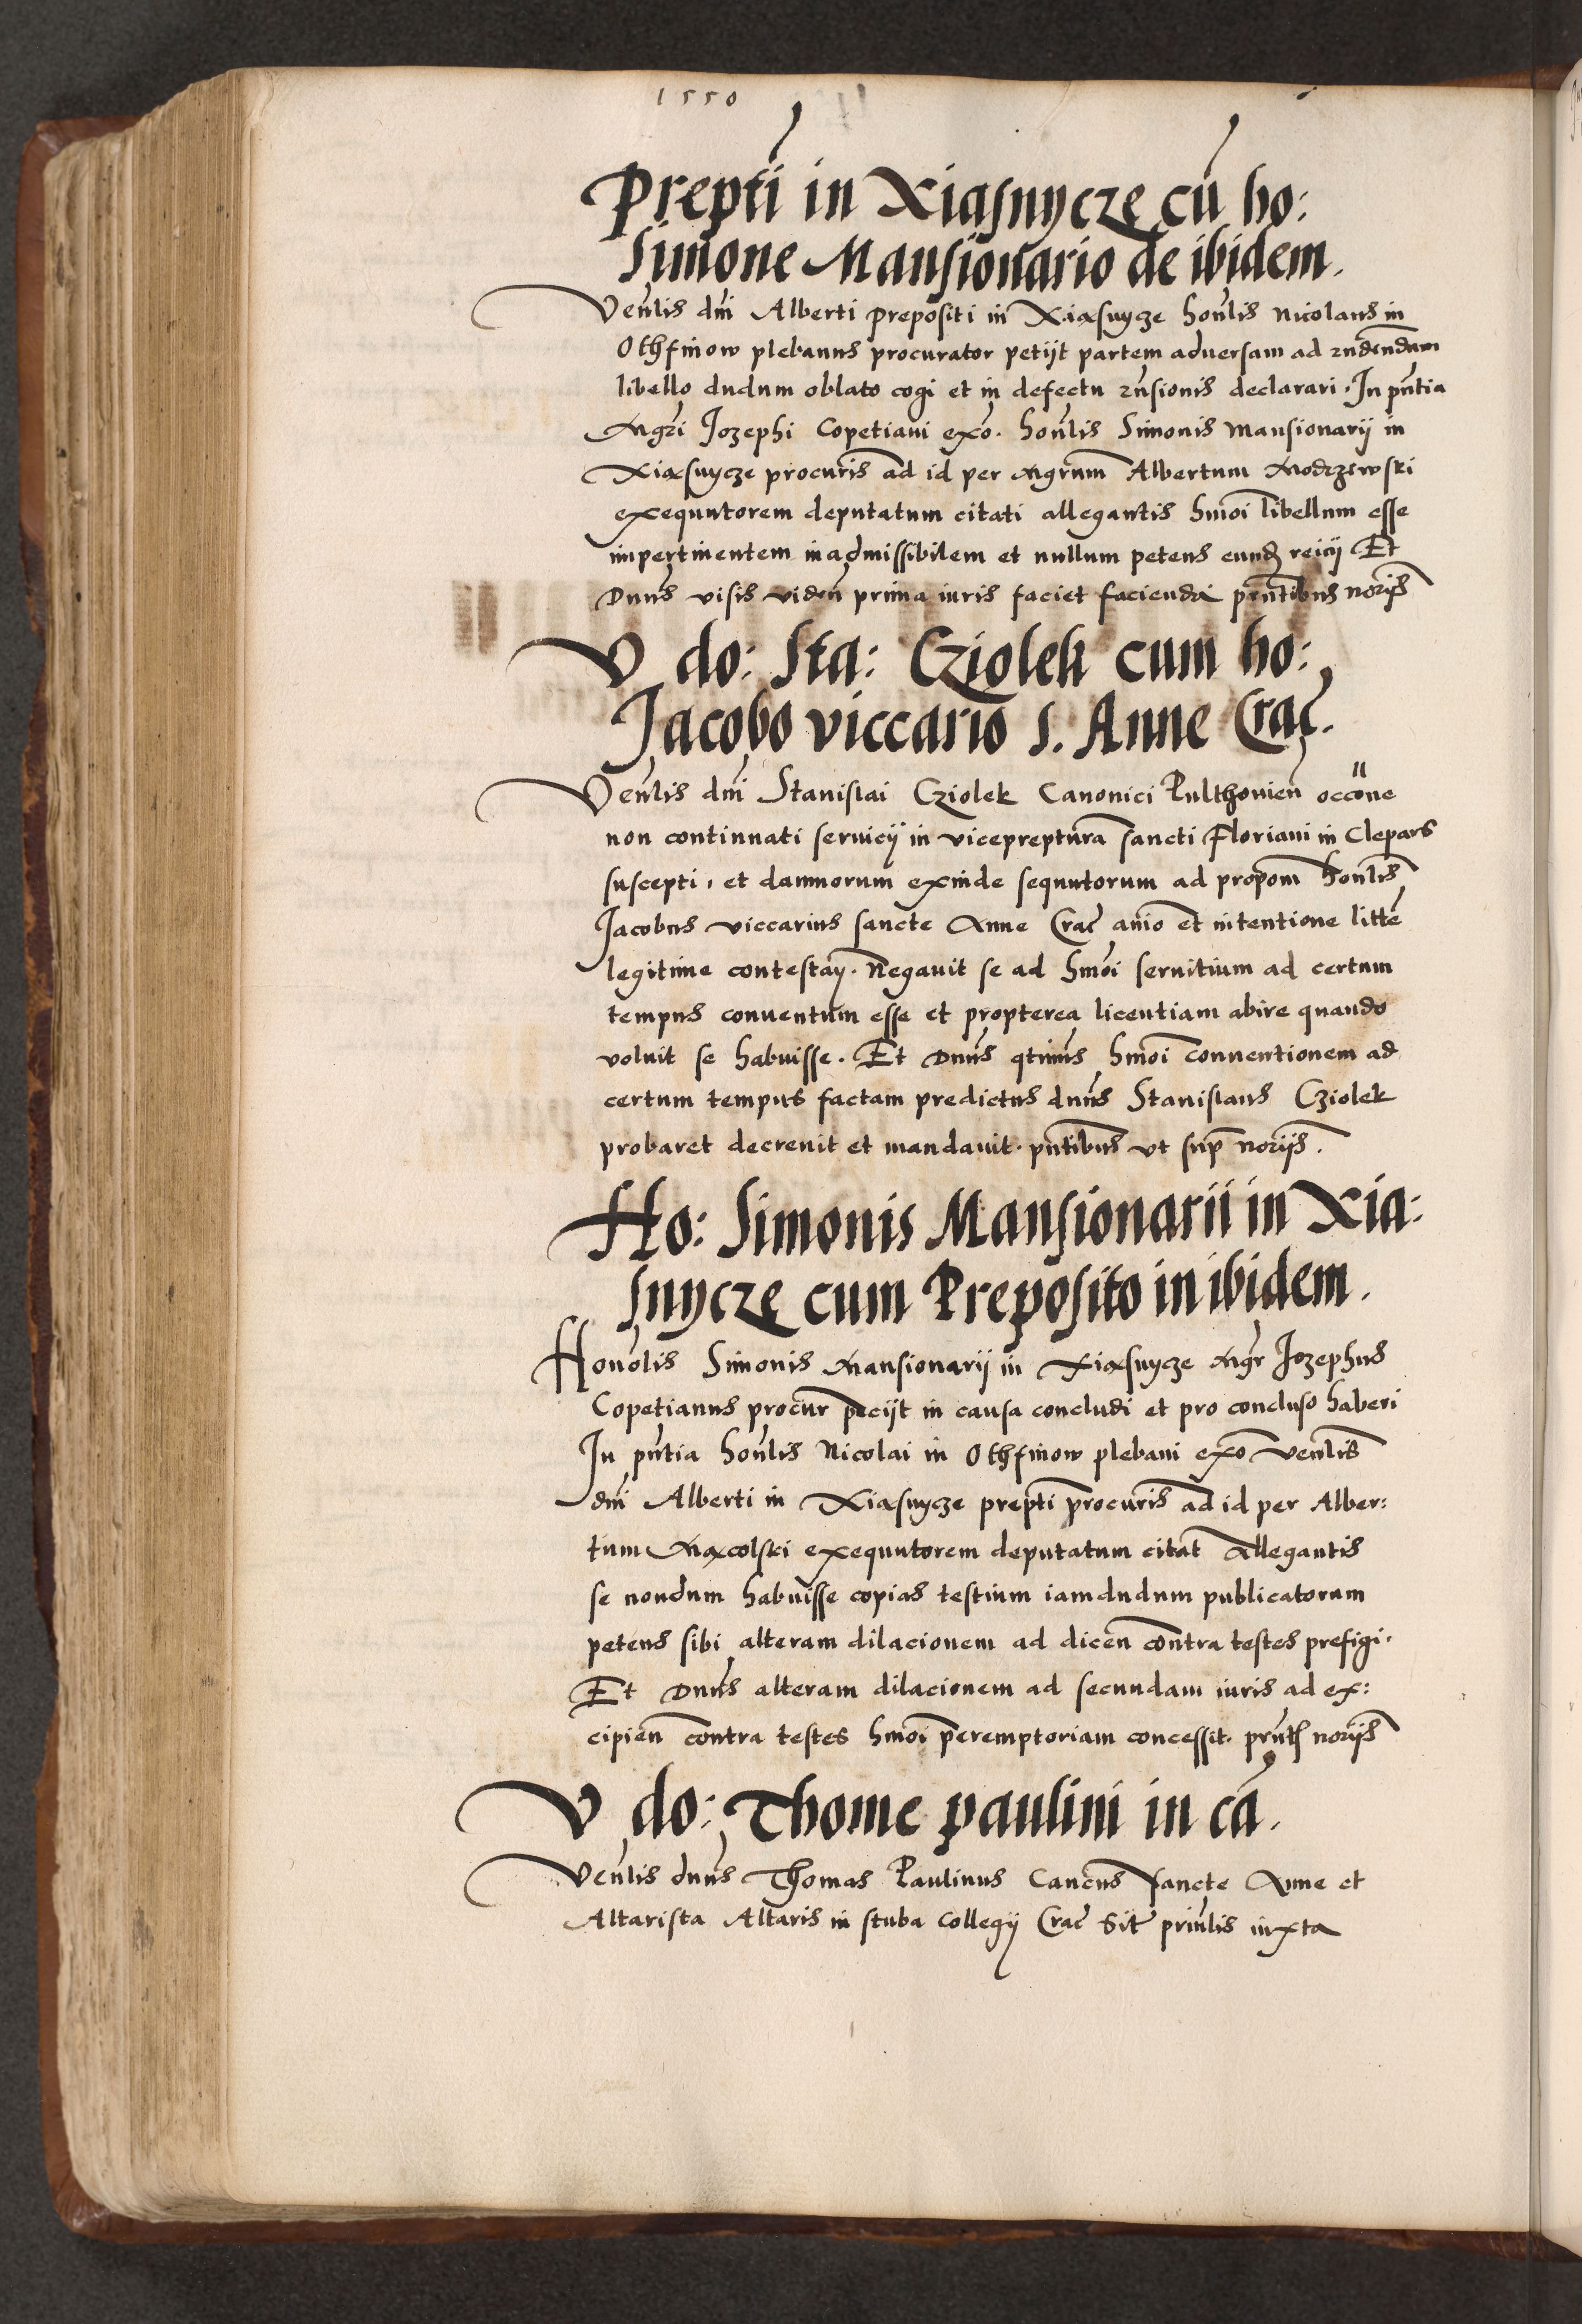 1550
Prepti in Xiasnycze cu ho:
Simone Mansionario de ibidem.
Venlis dni Alberti prepositi in Xiasnycze honlis Nicolaus in
Othfinow plebanus procurator petijt partem adversam ad rndendum
libello dudum oblato cogi et in defectu rnsionis declarari. In pntia
Mgri Jozephi Copetiani exo. honlis Simonis Mansionarij in
Xiasnycze procuris ad id per Mgrum Albertum Modrzewski
exequutorem deputatum citati allegantis hmoi libellum esse
impertinentem inadmissibilem et nullum petens eund reicij Et
Dnus visis viden prima iuris faciet facienda prntibus norijs
V do: Sta: Cziolek cum ho:
Jacobo viccario S. Anne Crac.
Venlis dni Stanislai Cziolek Canonici Pulthovien occone
non continuati servicij in viceprepturā sancti Floriani in Clepars
suscepti, et damnorum exinde sequutorum ad propom honlis
Jacobus viccarius sancte Anne Crac anio et intentione litte
legitime contestaj. Negavit se ad hmoi servitium ad certum
tempus conventum esse et propterea licentiam abire quando
voluit se habuisse. Et Dnus qtinus hmoi conventionem ad
certum tempus factam predictus dnus Stanislaus Cziolek
probaret decrevit et mandavit. pntibus ut sup norijs.
Ho: Simonis Mansionarii in Xia:
snycze cum Preposito in ibidem.
Honolis Simonis Mansionarij in Xiasnycze Mgr Jozephus
Copetianus procur pecijt in causa concludi et pro concluso haberi
In pntia honlis Nicolai in Othfinow plebani exo venlis
dni Alberti in Xiasnycze prepti procuris ad id per Alber:
tum Maxolski exequutorem deputatum citat Allegantis
se nondum habuisse copias testium iamdudum publicatorum
petens sibi alteram dilacionem ad dicen contra testes prefigi.
Et Dnus alteram dilacionem ad secundam iuris ad ex:
cipien contra testes hmoi peremptoriam concessit. prnts norijs
V do: Thome paulini in cā.
Venlis dnus Thomas Paulinus Cancus sancte Anne et
Altarista Altaris in stuba Collegij Crac Sit prinlis iuxta